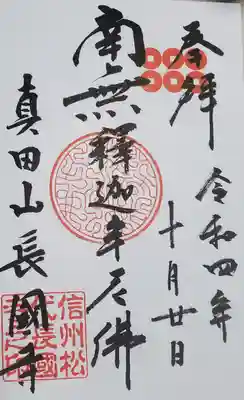 奉拝
令和四年
十月廿日
南無釋迦牟尼佛
真田山長國寺
信州松
代長國